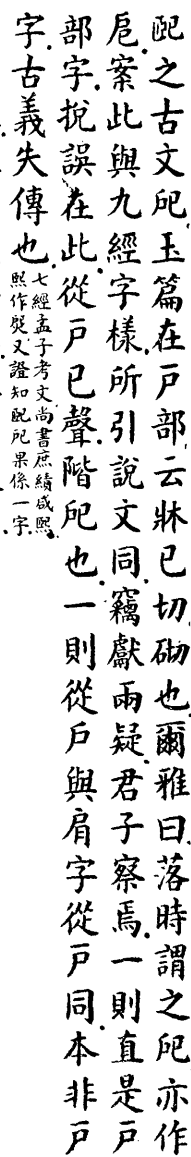 巸之古文戺玉篇在戶部云牀巳切砌也爾雅曰落時謂之戺亦作
案此與九經字樣所引說文同竊獻兩疑君子察焉一則直是戶
部字挩誤在此從戶巳聲階戺也一則從戶與肩字從戶同本非戶
字古義失傳也
七經孟子考文尚書庶績咸熙
熙作又證知巸戺果係一字